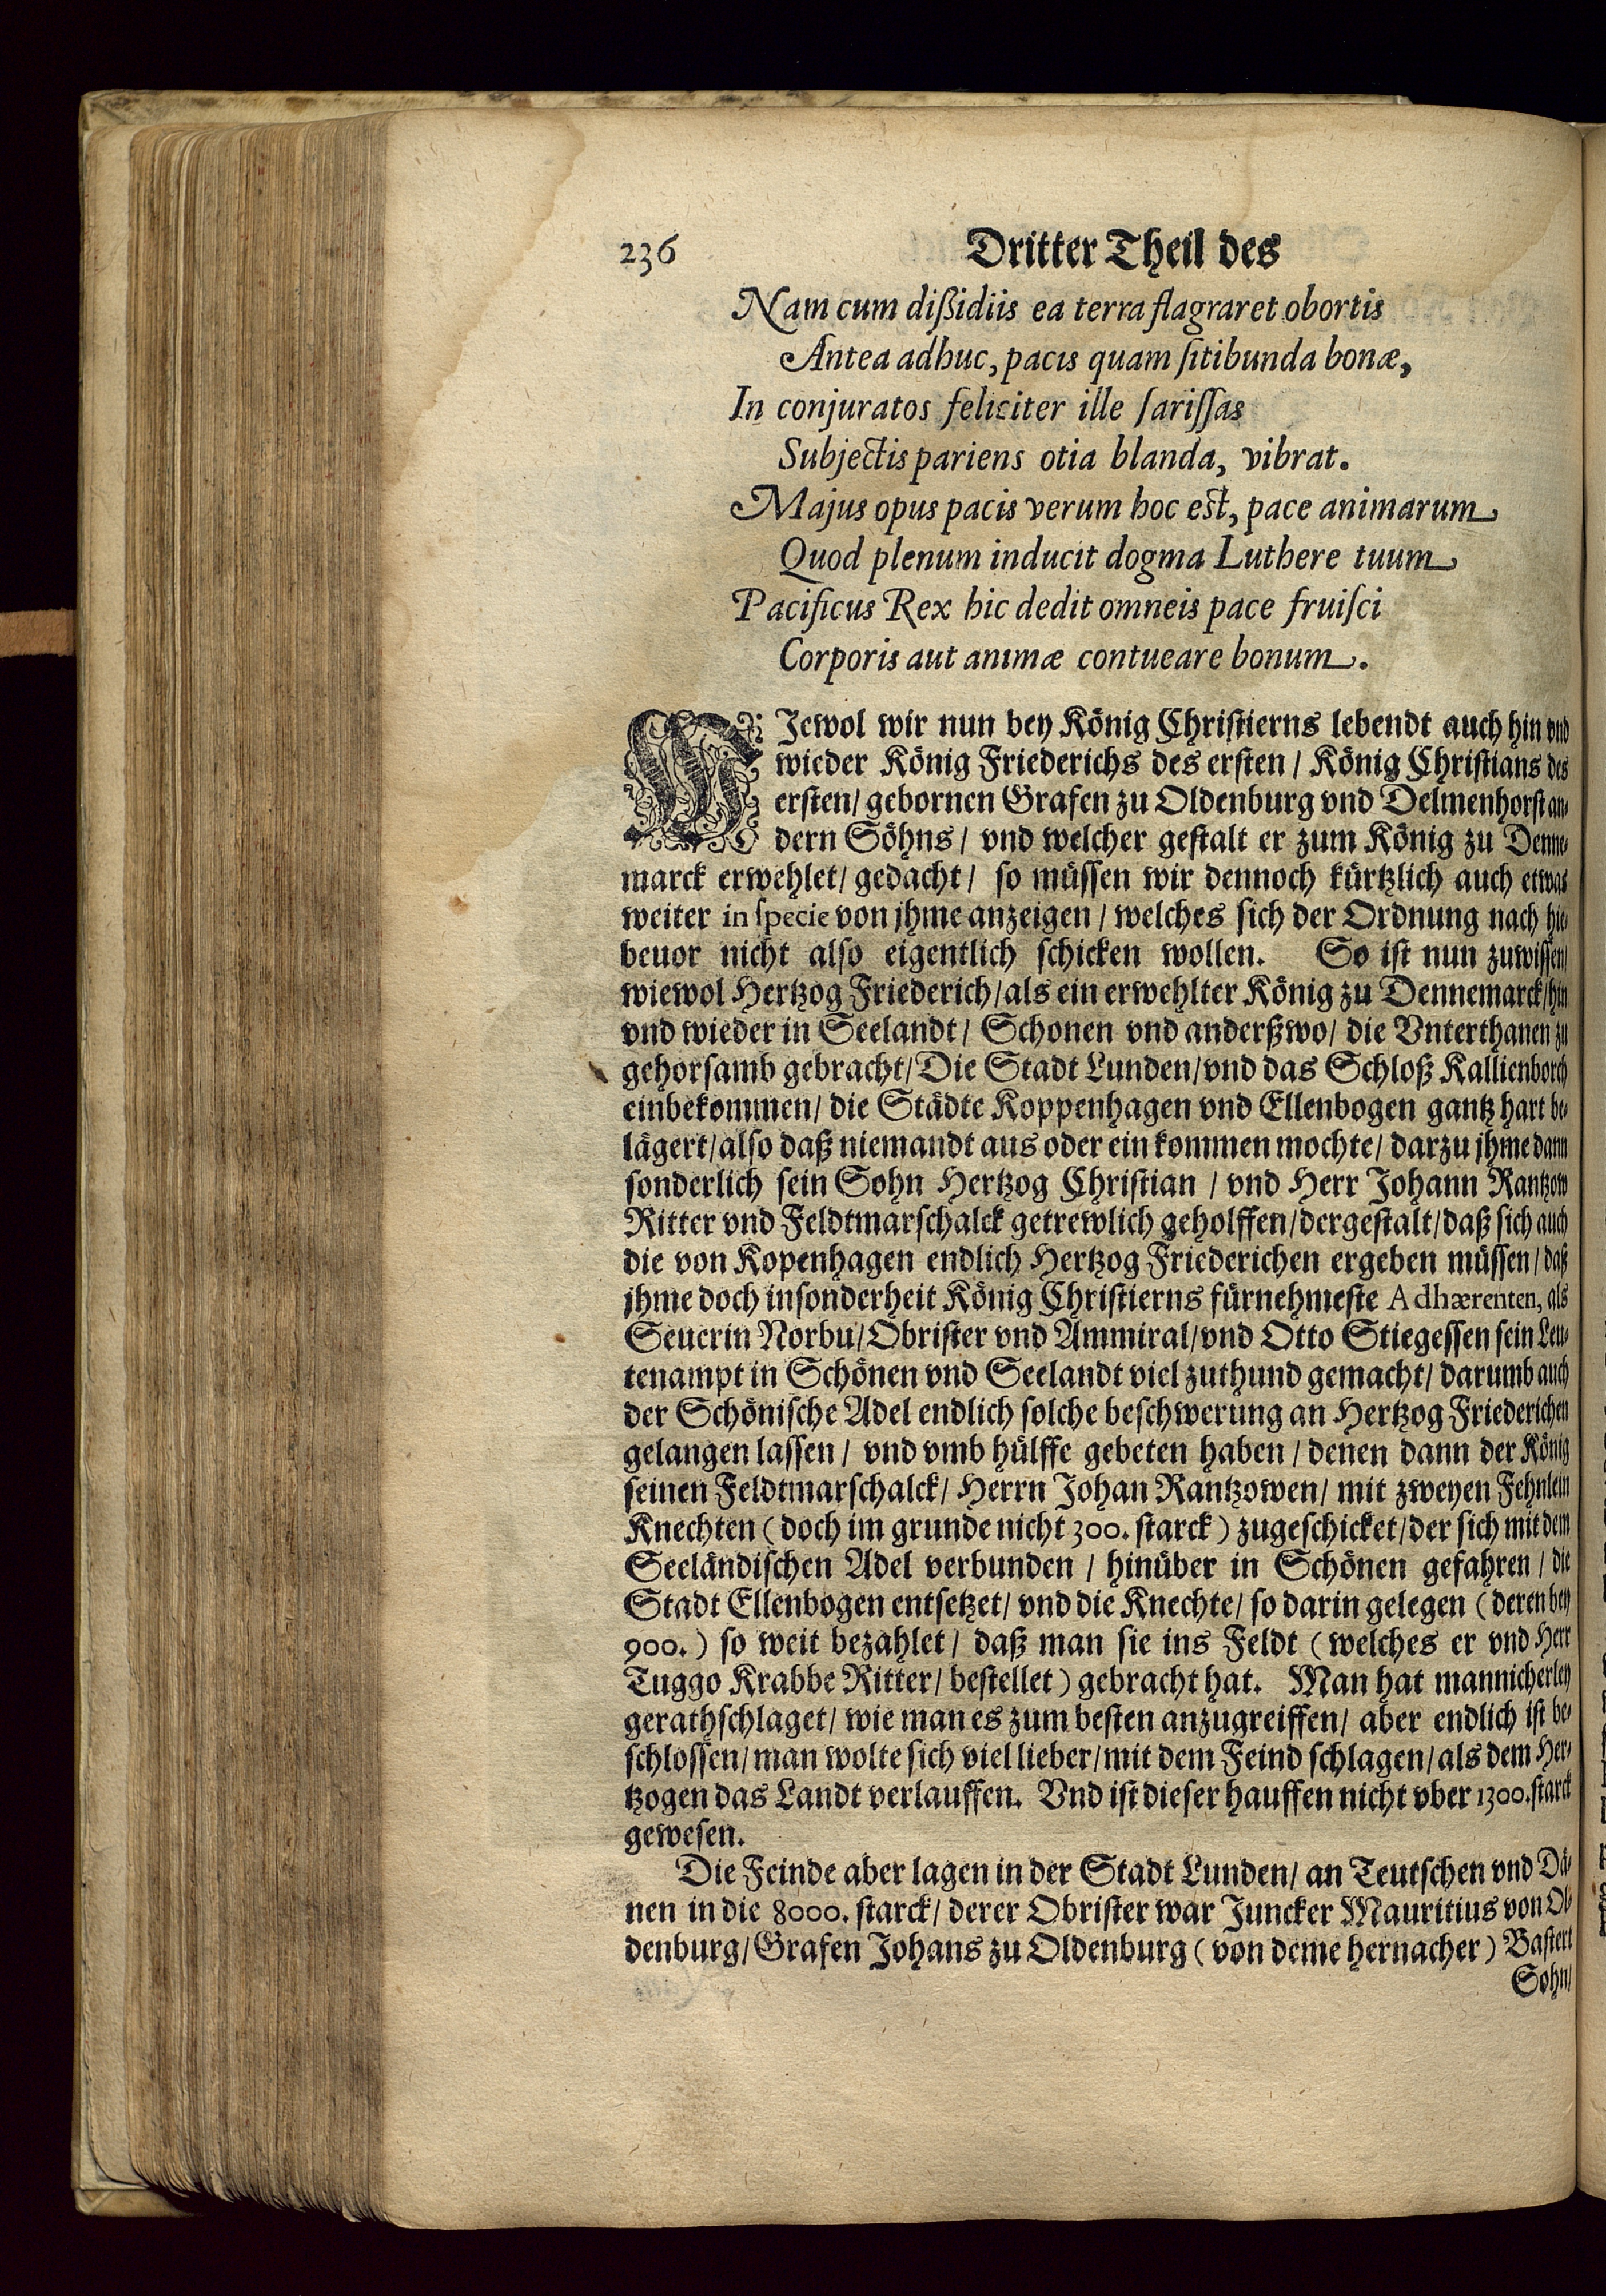 236 Dritter Theil des
Nam cum dißidiis ea terra flagraret obortis
Antea adhuc, pacis quam ſitibunda bonæ,
In conjuratos feliciter ille ſariſſas
Subjectis pariens otia blanda, vibrat.
Majus opus pacis verum hoc est, pace animarum
Quod plenum inducit dogma Luthere tuum
Pacificus Rex hic dedit omneis pace fruiſci
Corporis aut animæ contueare bonum.
WJewol wir nun bey König Chriſtierns lebendt auch hin vnd
wieder König Friederichs des erſten / König Chriſtians des
erſten / gebornen Grafen zu Oldenburg vnd Delmenhorſt an-
dern Söhns / vnd welcher geſtalt er zum König zu Denne-
marck erwehlet / gedacht / ſo müſſen wir dennoch kürtzlich auch etwas
weiter in ſpecie von jhme anzeigen / welches ſich der Ordnung nach hie-
beuor nicht alſo eigentlich ſchicken wollen. So iſt nun zuwiſſen /
wiewol Hertzog Friederich / als ein erwehlter König zu Dennemarck / hin
vnd wieder in Seelandt / Schonen vnd anderßwo / die Vnterthanen zu
gehorſamb gebracht / Die Stadt Lunden / vnd das Schloß Kallienborch
einbekommen / die Städte Koppenhagen vnd Ellenbogen gantz hart be-
lägert / alſo daß niemandt aus oder ein kommen mochte / darzu jhme dann
ſonderlich ſein Sohn Hertzog Chriſtian / vnd Herr Johann Rantzow
Ritter vnd Feldtmarſchalck getrewlich geholffen / dergeſtalt / daß ſich auch
die von Kopenhagen endlich Hertzog Friederichen ergeben müſſen / daß
jhme doch inſonderheit König Chriſtierns fürnehmeſte Adhærenten, als
Seuerin Norbu / Obriſter vnd Ammiral / vnd Otto Stiegeſſen ſein Leu-
tenampt in Schönen vnd Seelandt viel zuthund gemacht / darumb auch
der Schöniſche Adel endlich ſolche beſchwerung an Hertzog Friederichen
gelangen laſſen / vnd vmb hülffe gebeten haben / denen dann der König
ſeinen Feldtmarſchalck / Herrn Johan Rantzowen / mit zweyen Fehnlein
Knechten (doch im grunde nicht 300. ſtarck) zugeſchicket / der ſich mit dem
Seeländiſchen Adel verbunden / hinüber in Schönen gefahren / die
Stadt Ellenbogen entſetzet / vnd die Knechte / ſo darin gelegen (deren bey
900.) ſo weit bezahlet / daß man ſie ins Feldt (welches er vnd Herr
Tuggo Krabbe Ritter / beſtellet) gebracht hat. Man hat mannicherley
gerathſchlaget / wie man es zum beſten anzugreiffen / aber endlich iſt be-
ſchloſſen / man wolte ſich viel lieber / mit dem Feind ſchlagen / als dem Her-
tzogen das Landt verlauffen. Vnd iſt dieſer hauffen nicht vber 1300. ſtarck
geweſen.
Die Feinde aber lagen in der Stadt Lunden / an Teutſchen vnd Dä-
nen in die 8000. ſtarck / derer Obriſter war Juncker Mauritius von Ol-
denburg / Grafen Johans zu Oldenburg (von deme hernacher) Baſtert
Sohn /